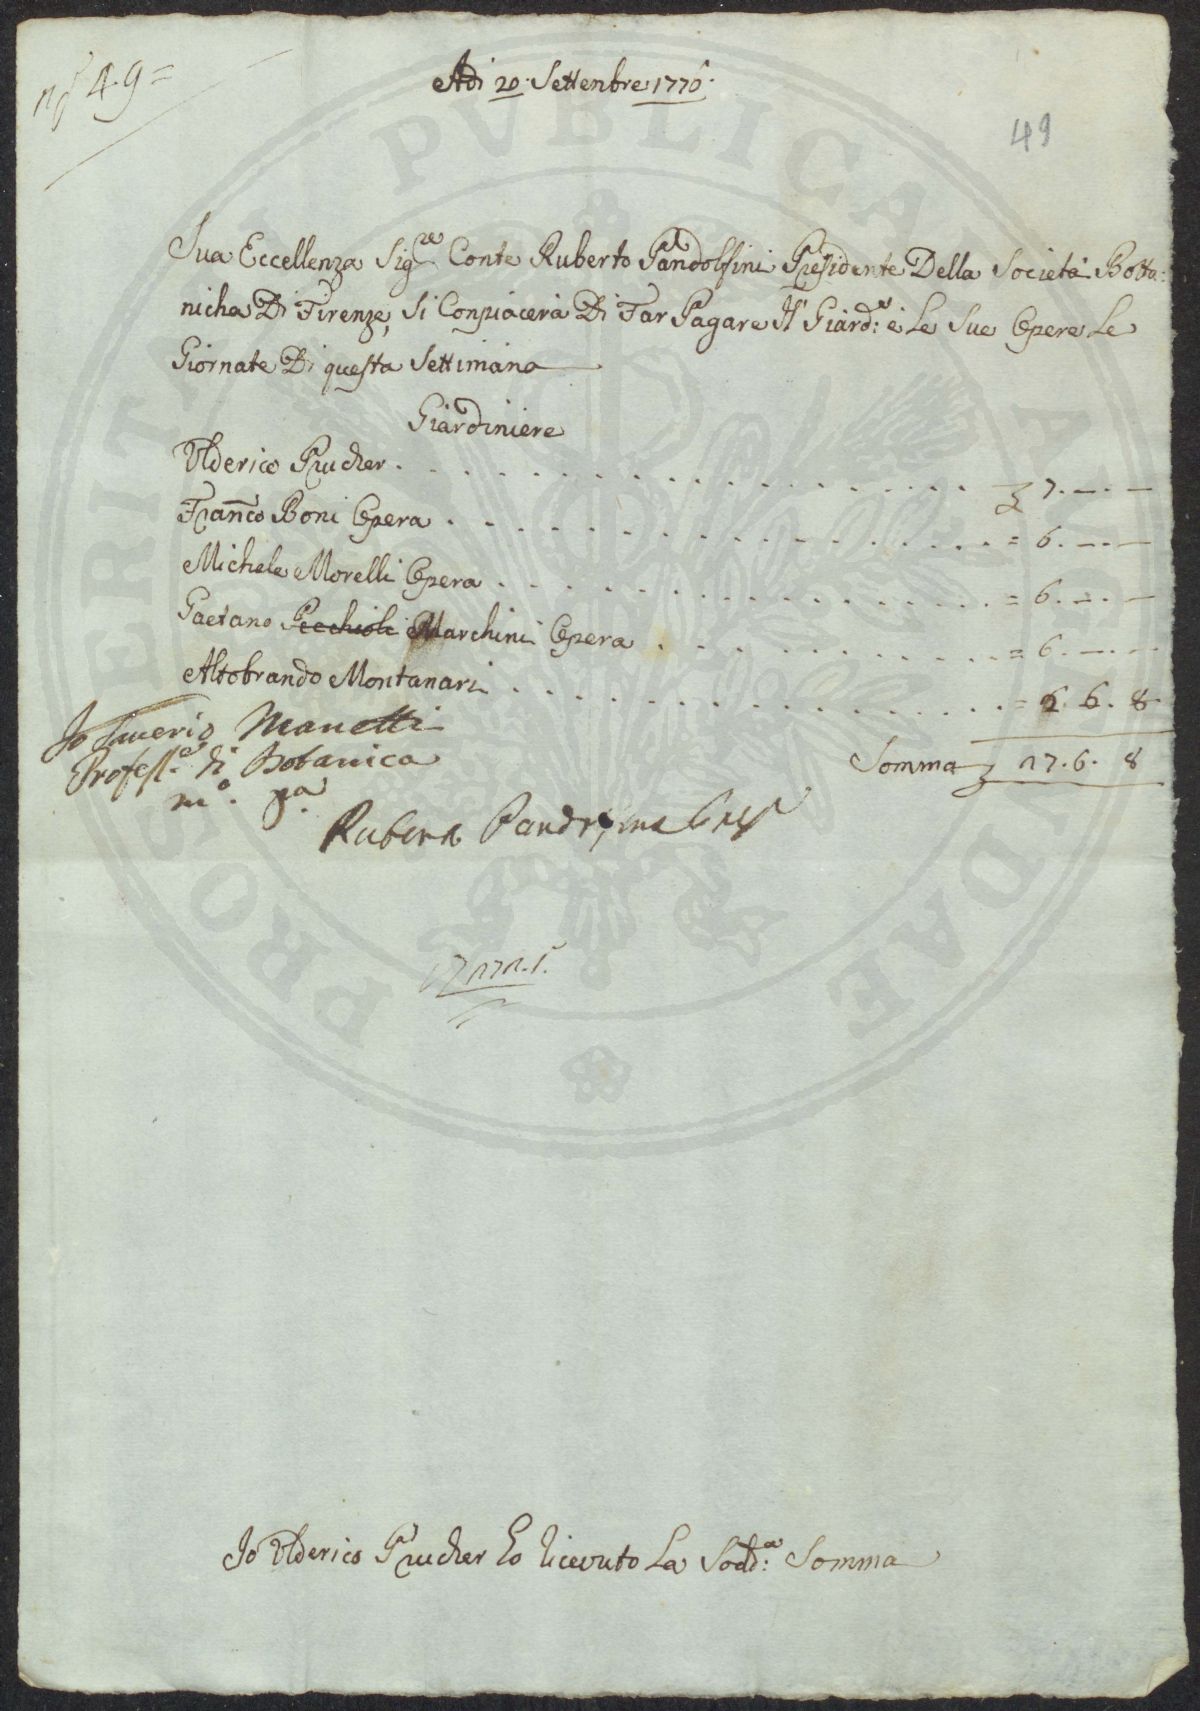 nº 49=
Adì 20. Settenbre 1776.
49
Sua Eccellenza Sig.re Conte Ruberto Pandolfini Presidente Della Società Botta:
nicha Di Firenze, Si Conpiacerà Di Far Pagare Il Giard:e e Le Sue Opere Le
Giornate Di questa Settimana
Giardiniere
Ulderico Prucher . . . . . . . . . . 7.—.—
Franco Boni Opera . . . . . . . . . . = 6.—.—
Michele Morelli Opera . . . . . . . . . . = 6.—.—
Gaetano Pecchioli Marchini Opera . . . . . . . . . . = 6.—.—
Altobrando Montanari . . . . . . . . . . = 6. 8.
Io Saverio Manetti
Profess.e di Botanica
m.o p.a
Somma 27.6.8
Ruberto Pandolfini
Io Ulderico Prucher ho ricevuto La Sodd:a Somma
PROSPERITATI PUBLICAE AUGENDAE